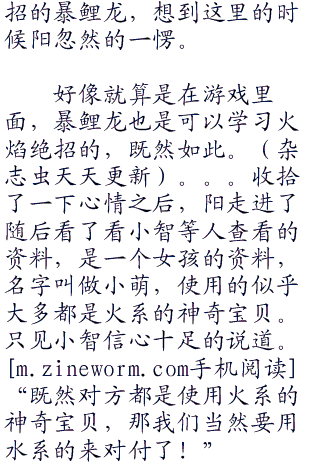 招的暴鲤龙，想到这里的时
候阳忽然的一愣。
好像就算是在游戏里
面，暴鲤龙也是可以学习火
焰绝招的，既然如此。（杂
志虫天天更新）。。。收拾
了一下心情之后，阳走进了
随后看了看小智等人查看的
资料，是一个女孩的资料，
名字叫做小萌，使用的似乎
大多都是火系的神奇宝贝。
只见小智信心十足的说道。
[m.zineworm.com手机阅读]
“既然对方都是使用火系的
神奇宝贝，那我们当然要用
水系的来对付了！”